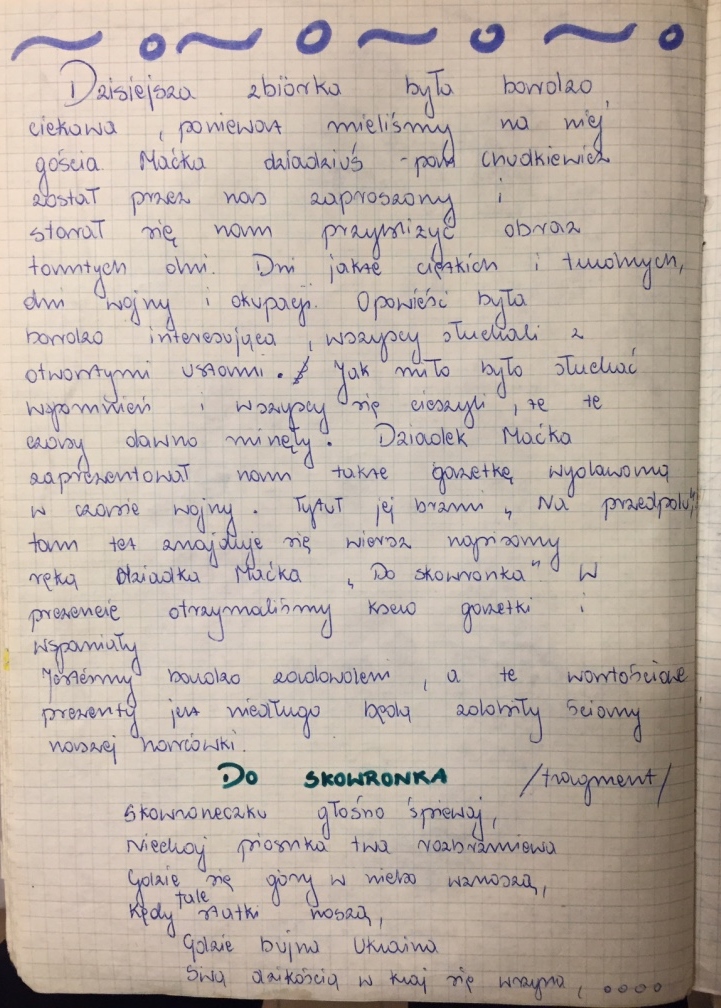 Dzisiejsza zbiórka była bardzo
ciekawa, ponieważ mieliśmy na niej
gościa. Maćka dziadziuś - pan Chudkiewicz
został przez nas zaproszony i
starał się nam przybliżyć obraz
tamtych dni. Dni jakże ciężkich i trudnych,
dni wojny i okupacji. Opowieść była
bardzo interesująca, wszyscy słuchali z
otwartymi ustami. Jak miło było słuchać
wspomnień i wszyscy się cieszyli, że te
czasy dawno minęły. Dziadek Maćka
zaprezentował nam także gazetkę wydawaną
w czasie wojny. Tytuł jej brzmi „Na przedpolu",
tam też znajduje się wiersz napisany
ręką dziadka Maćka „Do skowronka" W
prezencie otrzymaliśmy ksero gazetki i
wspaniały
Jesteśmy bardzo zadowoleni, a te wartościowe
prezenty już niedługo będą zdobiły ściany
naszej harcówki.
DO SKOWRONKA /fragment/
Skowroneczku głośno śpiewaj,
Niechaj piosnka twa rozbrzmiewa
Gdzie się góry w niebo wznoszą,
Kędy fale statki noszą,
Gdzie bujna Ukraina
Swą dzikością w kraj się wrzyna, ....